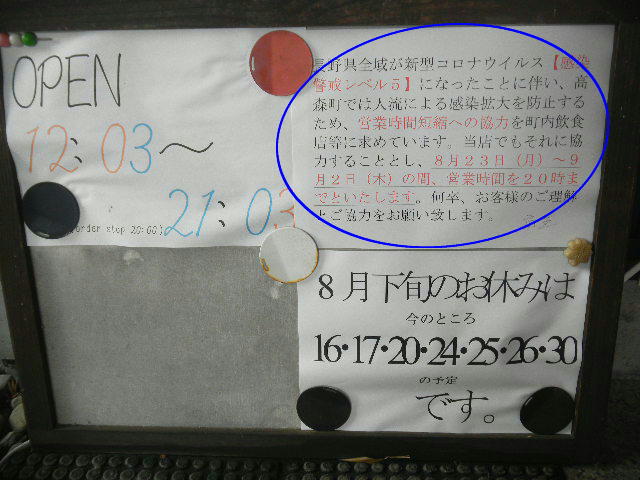 OPEN
12:03～
21:03
(order stop 20:00)
長野県全域が新型コロナウイルス【感染
警戒レベル５】になったことに伴い、高
森町では人流による感染拡大を防止する
ため、営業時間短縮への協力を町内飲食
店等に求めています。当店でもそれに協
力することとし、８月２３日（月）～９
月２日（木）の間、営業時間を２０時ま
でといたします。何卒、お客様のご理解
とご協力をお願い致します。
8月下旬のお休みは
今のところ
16・17・20・24・25・26・30
の予定
です。